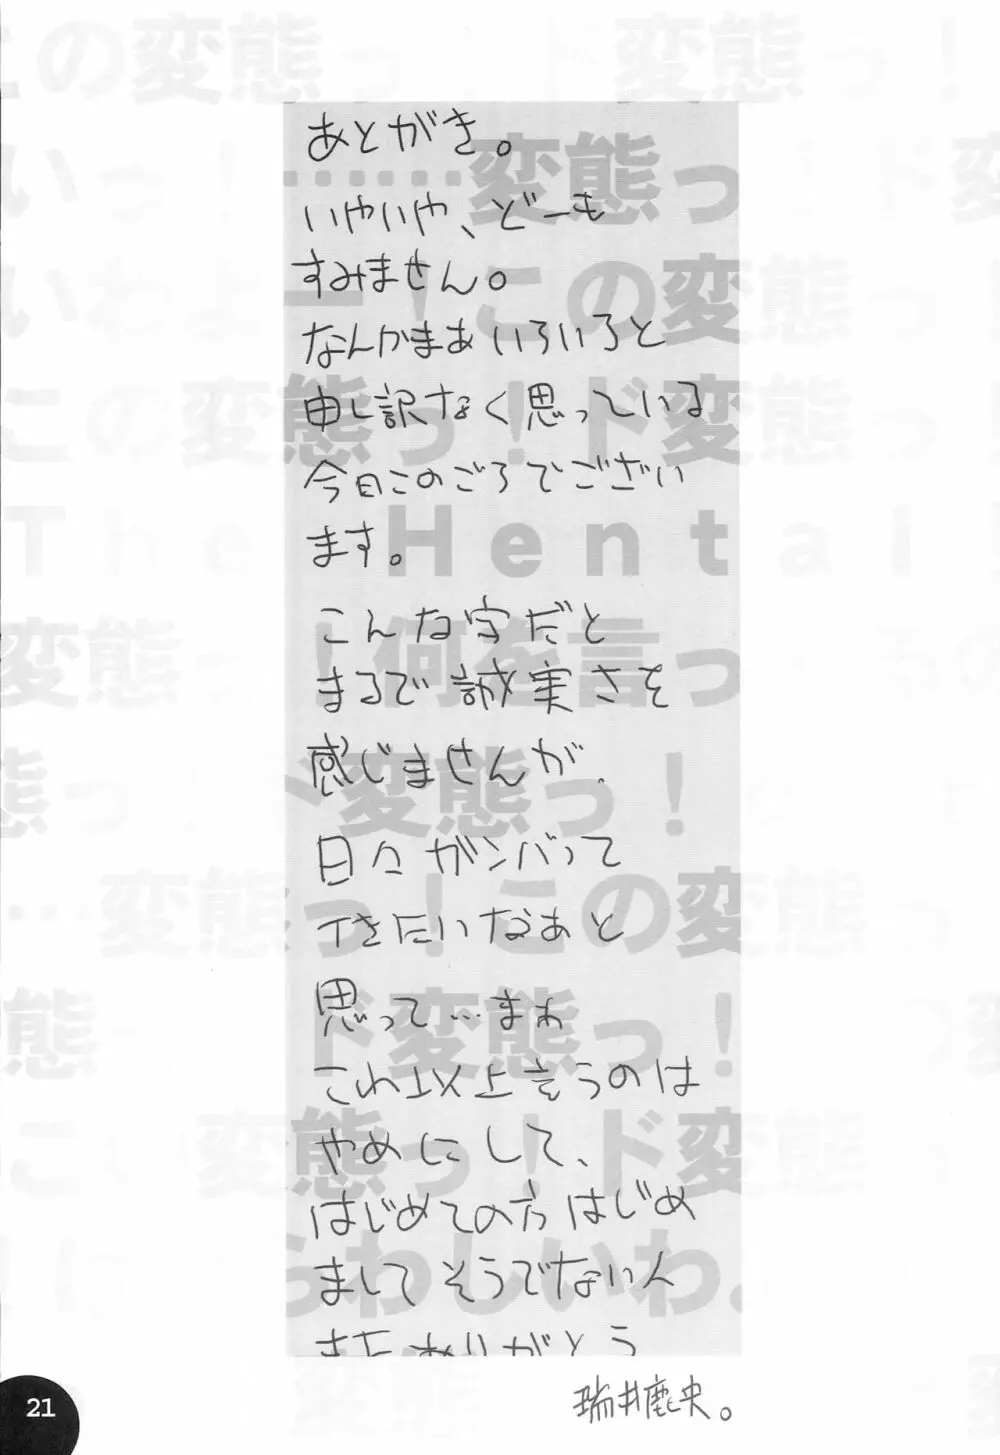 あとがき。
いやいや、どーも
すみません。
なんかまあいろいろと
申し訳なく思っている
今日このごろでござい
ます。
こんな字だと
まるで誠実さを
感じませんが、
日々ガンバって
イきたいなあと
思って…まぁ
これ以上言うのは
やめにして、
はじめての方はじめ
ましてそうでない人
またありがとう
瑞井鹿央。
この変態っ!ド変態っ!
いっ!……変態っ!ド変
いわよ ー!この変態っ!
この変態っ!ド変態っ
The Hentai!
変態っ!何を言ってるの
態っ!ド変態っ!
…変態っ!この変態っ
態っ ド変態っ!
この変態っ!ド変態っ
らわしいわ
21